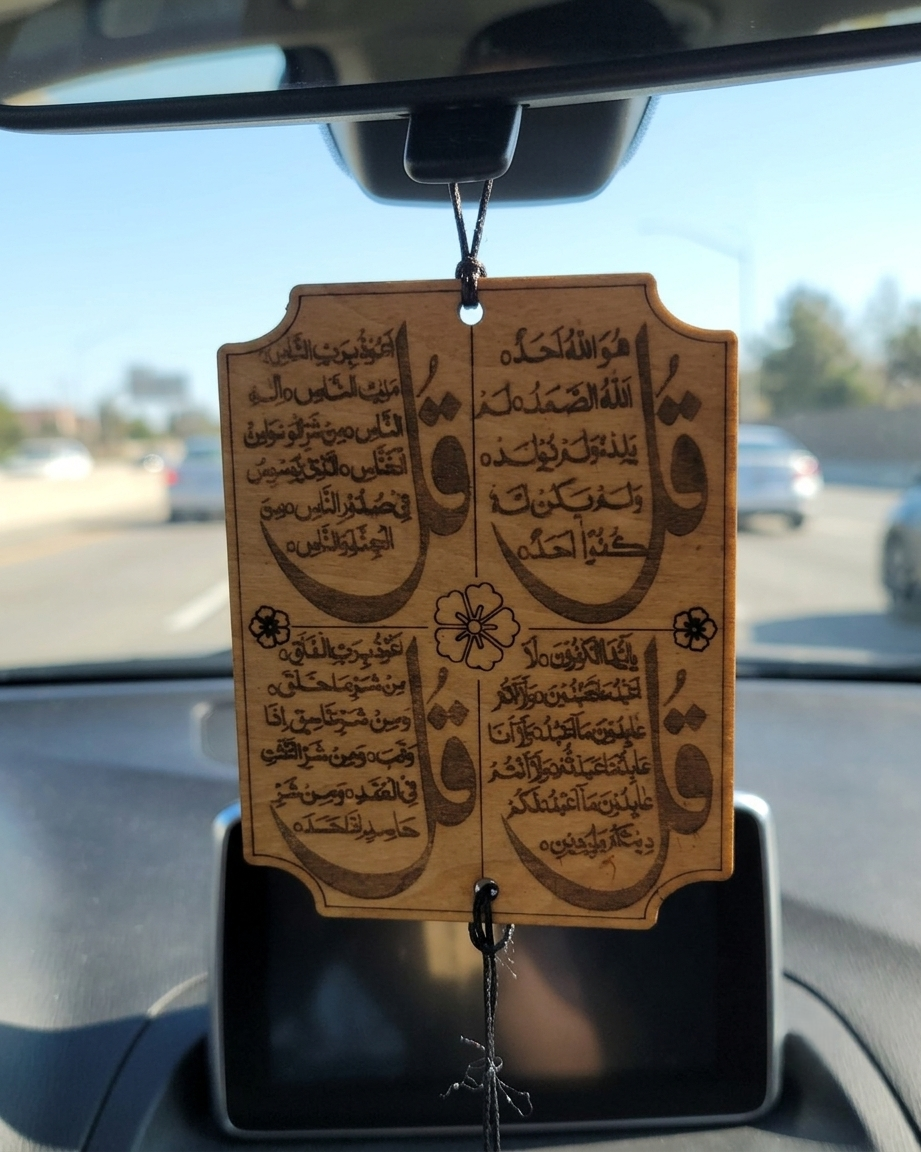 قُلْ
هُوَ اللهُ اَحَدٌ ۝
اَللهُ الصَّمَدُ ۝ لَمْ
يَلِدْ ۝ وَلَمْ يُوْلَدْ ۝
وَلَمْ يَكُنْ لَهُ
كُفُوًا اَحَدٌ ۝
قُلْ
اَعُوْذُ بِرَبِّ النَّاسِ ۝
مَلِكِ النَّاسِ ۝ اِلٰهِ
النَّاسِ ۝ مِنْ شَرِّ الْوَسْوَاسِ
الْخَنَّاسِ ۝ الَّذِيْ يُوَسْوِسُ
فِيْ صُدُوْرِ النَّاسِ ۝ مِنَ
الْجِنَّةِ وَالنَّاسِ ۝
قُلْ
يٰاَيُّهَا الْكٰفِرُوْنَ ۝ لَا
اَعْبُدُ مَا تَعْبُدُوْنَ ۝ وَلَا اَنْتُمْ
عٰبِدُوْنَ مَا اَعْبُدُ ۝ وَلَا اَنَا
عَابِدٌ مَّا عَبَدْتُّمْ ۝ وَلَا اَنْتُمْ
عٰبِدُوْنَ مَا اَعْبُدُ ۝ لَكُمْ
دِيْنُكُمْ وَلِيَ دِيْنِ ۝
قُلْ
اَعُوْذُ بِرَبِّ الْفَلَقِ ۝
مِنْ شَرِّ مَا خَلَقَ ۝
وَمِنْ شَرِّ غَاسِقٍ اِذَا
وَقَبَ ۝ وَمِنْ شَرِّ النَّفّٰثٰتِ
فِي الْعُقَدِ ۝ وَمِنْ شَرِّ
حَاسِدٍ اِذَا حَسَدَ ۝